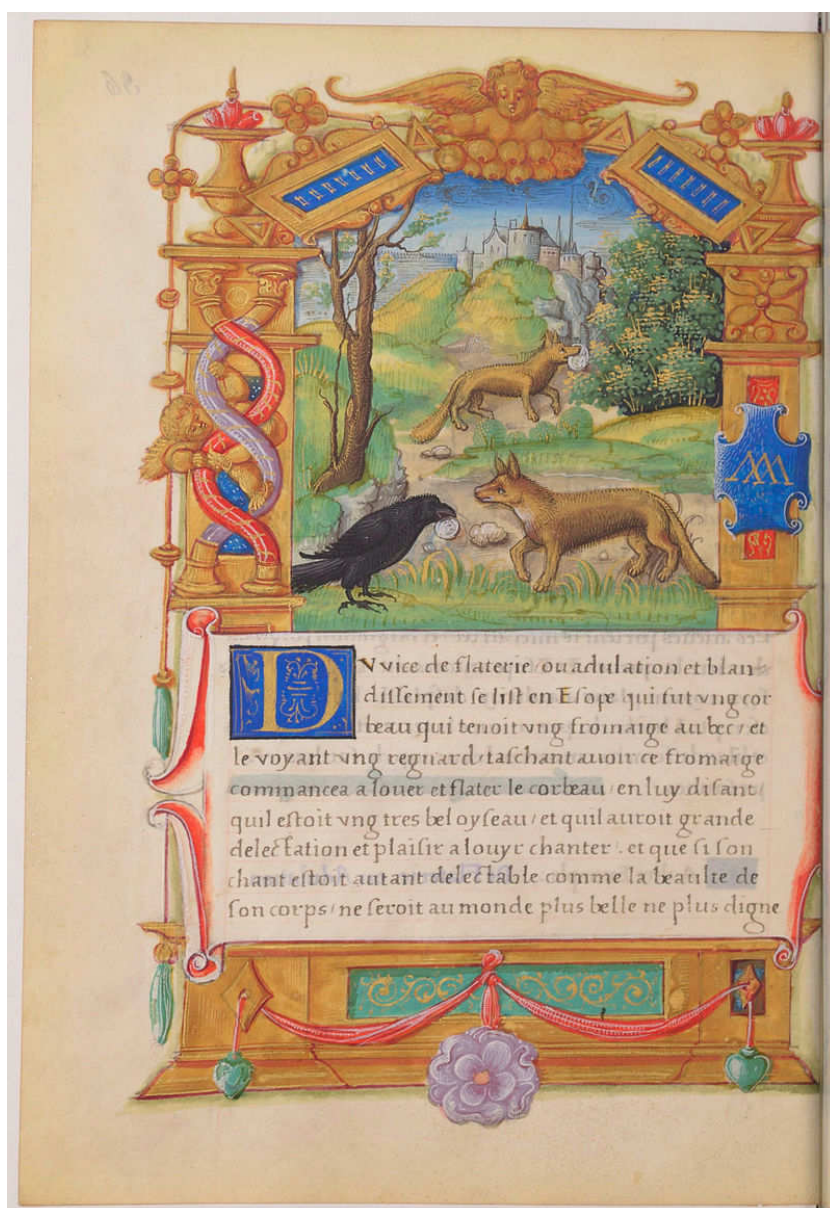 DV vice de flaterie ou adulation et blan
dissement se list en Esope qui fut vng cor
beau qui tenoit vng fromaige au bec / et
le voyant vng regnard / taschant auoir ce fromaige
commancea a louer et flater le corbeau / en luy disant
quil estoit vng tres bel oyseau / et quil auroit grande
delectation et plaisir a louyr chanter . et que si son
chant estoit autant delectable comme la beaulte de
son corps / ne seroit au monde plus belle ne plus digne